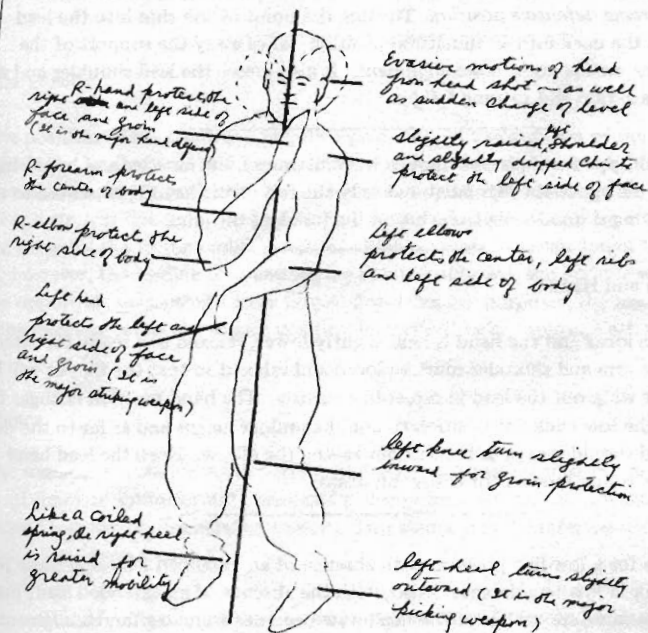 R-hand protects the
right and left side of
face and groin
(It is the major hand defense)
R-forearm protect
the center of body
R-elbow protects the
right side of body
Left hand
protects the left and
right side of face
and groin (It is
the major striking weapon)
Like a coiled
spring, the right heel
is raised for
greater mobility
Evasive motions of head
from head shots - as well
as sudden change of level
slightly raised shoulder
and slightly dipped chin to
protect the left side of face
left elbow
protects the center, left ribs
and left side of body
left knee turn slightly
inward for groin protection
left heel turn slightly
outward (It is the major
kicking weapon)